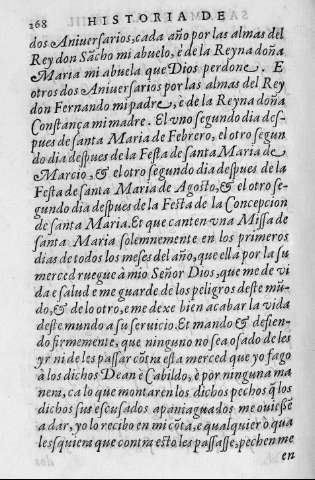 268 HISTORIA DE
dos Aniuersarios, cada año por las almas del
Rey don Sãcho mi abuelo, è de la Reyna doña
Maria mi abuela que Dios perdone. E
otros dos Aniuersarios por las almas del Rey
don Fernando mi padre, è de la Reyna doña
Constança mi madre. El vno segundo dia des-
pues de santa Maria de Febrero, el otro segun
do dia despues de la Festa de santa Maria de
Marcio, & el otro segundo dia despues de la
Festa de santa Maria de Agosto, & el otro se-
gundo dia despues de la Festa de la Concepcion
de santa Maria. Et que canten vna Missa de
santa Maria solemnemente en los primeros
dias de todos los meses del año, que ella por la su
merced ruegue à mio Señor Dios, que me de vi
da e salud e me guarde de los peligros deste mũ-
do, & de lo otro, e me dexe bien acabar la vida
deste mundo a su seruicio. Et mando & defien-
do firmemente, que ninguno no sea osado de les
yr ni de les passar cõtra esta merced que yo fago
à los dichos Dean è Cabildo, è por ninguna ma
nera, ca lo que montaren los dichos pechos q̃ los
dichos sus escusados apaniaguados me ouiessẽ
a dar, yo lo recibo en mi cõta, e qualquier ò qua
lesquiera que contra esto les passasse, pechen me
en